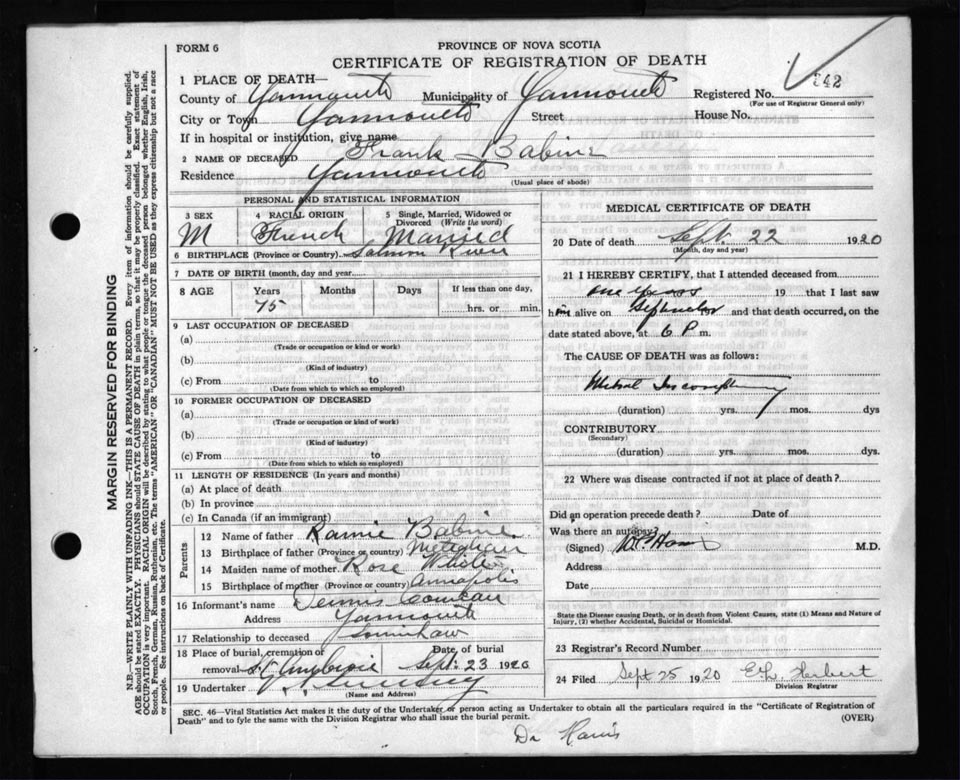 FORM 6
PROVINCE OF NOVA SCOTIA
CERTIFICATE OF REGISTRATION OF DEATH
1 PLACE OF DEATH—
County of Yarmouth Municipality of Yarmouth Registered No. 242
(For use of Registrar General only)
City or Town Yarmouth Street House No.
If in hospital or institution, give name
2 NAME OF DECEASED Frank Babine
Residence Yarmouth
(Usual place of abode)
PERSONAL AND STATISTICAL INFORMATION
3 SEX 4 RACIAL ORIGIN 5 Single, Married, Widowed or
Divorced (Write the word)
M French Married
6 BIRTHPLACE (Province or Country) Salmon River
7 DATE OF BIRTH (month, day and year)
8 AGE Years Months Days If less than one day,
75 hrs. or min.
9 LAST OCCUPATION OF DECEASED
(a)
(Trade or occupation or kind or work)
(b)
(Kind of industry)
(c) From to
(Date from which to which so employed)
10 FORMER OCCUPATION OF DECEASED
(a)
(Trade or occupation or kind of work)
(b)
(Kind of industry)
(c) From to
(Date from which to which so employed)
11 LENGTH OF RESIDENCE (In years and months)
(a) At place of death
(b) In province
(c) In Canada (if an immigrant)
Parents
12 Name of father Babine
13 Birthplace of father (Province or country) Meteghan
14 Maiden name of mother Rose
15 Birthplace of mother (Province or country) Annapolis
16 Informant's name Dennis Comeau
Address Yarmouth
17 Relationship to deceased Soninlaw
18 Place of burial, cremation or Date of burial
removal St Ambrose Sept. 23 1920
19 Undertaker
(Name and Address)
MEDICAL CERTIFICATE OF DEATH
20 Date of death Sept. 22 1920
(Month, day and year)
21 I HEREBY CERTIFY, that I attended deceased from
one 19 that I last saw
him alive on September and that death occurred, on the
date stated above, at 6 P m.
The CAUSE OF DEATH was as follows:
Mitral
(duration) yrs. mos. dys
CONTRIBUTORY
(Secondary)
(duration) yrs. mos. dys.
22 Where was disease contracted if not at place of death?
Did an operation precede death? Date of
Was there an autopsy?
(Signed) M.D.
Address
Date
State the Disease causing Death, or in death from Violent Causes, state (1) Means and Nature of
Injury, (2) whether Accidental, Suicidal or Homicidal.
23 Registrar's Record Number
24 Filed Sept 25 1920 E. L. Herbert
Division Registrar
SEC. 46—Vital Statistics Act makes it the duty of the Undertaker or person acting as Undertaker to obtain all the particulars required in the "Certificate of Registration of
Death" and to fyle the same with the Division Registrar who shall issue the burial permit.
(OVER)
Dr Harris
MARGIN RESERVED FOR BINDING
N.B.—WRITE PLAINLY WITH UNFADING INK—THIS IS A PERMANENT RECORD. Every item of information should be carefully supplied.
AGE should be stated EXACTLY. PHYSICIANS should STATE CAUSE OF DEATH in plain terms, so that it may be properly classified. Exact statement of
OCCUPATION is very important. RACIAL ORIGIN will be described by stating to what people or tongue the deceased person belonged whether English, Irish,
Scotch, French, German, Russian, Ruthenian, etc. The terms "AMERICAN" OR "CANADIAN" MUST NOT BE USED as they express citizenship but not a race
or people. See instructions on back of Certificate.